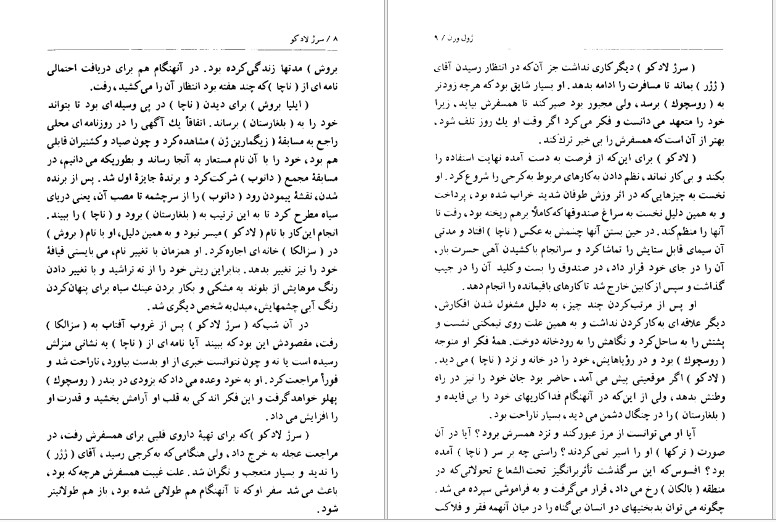 ۸ / سرژ لادکو
بروش ) مدتها زندگی‌کرده بود. در آنهنگام هم برای دریافت احتمالی
نامه‌ای از ( ناچا ) که چند هفته بود انتظار آن را می‌کشید، رفت.
( ایلیا بروش ) برای دیدن ( ناچا ) در پی وسیله‌ای بود تا بتواند
خود را به ( بلغارستان ) برساند. اتفاقاً یک آگهی را در روزنامه‌ای محلی
راجع به مسابقهٔ ( زیگمارین‌ژن ) مشاهده‌کرد و چون صیاد وکشتیران قابلی
هم بود، خود را با آن نام مستعار به آنجا رساند و بطوریکه می‌دانیم، در
مسابقهٔ مجمع ( دانوب ) شرکت‌کرد و برندهٔ جایزهٔ اول شد. پس از برنده
شدن، نقشهٔ پیمودن رود ( دانوب ) را از سرچشمه تا مصب آن، یعنی دریای
سیاه مطرح کرد تا به این ترتیب به ( بلغارستان ) برود و ( ناچا ) را ببیند.
انجام این‌کار با نام ( لادکو ) میسر نبود و به همین دلیل، او با نام ( بروش )
در ( سزالکا ) خانه‌ای اجاره‌کرد. او همزمان با تغییر نام، می‌بایستی قیافهٔ
خود را نیز تغییر بدهد. بنابراین ریش خود را از ته تراشید و با تغییر دادن
رنگ موهایش از بلوند به مشکی و بکار بردن عینک سیاه برای پنهان‌کردن
رنگ آبی چشمهایش، مبدل‌به شخص دیگری شد.
در آن شب‌که ( سرژ لادکو ) پس از غروب آفتاب به ( سزالکا )
رفت، مقصودش این بودکه ببیند آیا نامه‌ای از ( ناچا ) به نشانی منزلش
رسیده است یا نه و چون نتوانست خبری از او بدست بیاورد، ناراحت شد و
فوراً مراجعت‌کرد. او به خود وعده می‌دادکه بزودی در بندر ( روسچوک )
پهلو خواهدگرفت و این فکر اندکی به قلب او آرامش بخشید و قدرت او
را افزایش می‌داد.
( سرژ لادکو )که برای تهیهٔ داروی قلبی برای همسفرش رفت، در
مراجعت عجله به خرج داد، ولی هنگامی‌که به‌کرجی رسید، آقای ( ژژر )
را ندید و بسیار متعجب و نگران شد. علت غیبت همسفرش هرچه‌که بود،
باعث می‌شد سفر اوکه تا آنهنگام هم طولانی شده بود، باز هم طولانیتر
شود.
ژول ورن / ۹
( سرژ لادکو ) دیگرکاری نداشت جز آن‌که در انتظار رسیدن آقای
( ژژر ) بماند تا مسافرت را ادامه بدهد. او بسیار شایق بودکه هرچه زودتر
به ( روسچوک ) برسد، ولی مجبور بود صبرکند تا همسفرش بیاید، زیرا
خود را متعهد می‌دانست و فکر می‌کرد اگر وقت او یک روز تلف شود،
بهتر از آن است‌که همسفرش را بی خبر ترک‌کند.
( لادکو ) برای این‌که از فرصت به دست آمده نهایت استفاده را
بکند و بی‌کار نماند، نظم دادن به‌کارهای مربوط به‌کرجی را شروع‌کرد. او
نخست به چیزهایی‌که در اثر وزش طوفان شدید خراب شده بود، پرداخت
و به همین دلیل نخست به سراغ صندوقها که‌کاملاً برهم ریخته بود، رفت تا
آنها را منظم‌کند. در حین بستن آنها چشمش به عکس ( ناچا ) افتاد و مدتی
آن سیمای قابل ستایش را تماشاکرد و سرانجام باکشیدن آهی حسرت بار،
آن را در جای خود قرار داد، در صندوق را بست وکلید آن را در جیب
گذاشت و سپس ازکابین خارج شد تاکارهای باقیمانده را انجام دهد.
او پس از مرتب‌کردن چند چیز، به دلیل مشغول شدن افکارش،
دیگر علاقه‌ای به‌کارکردن نداشت و به همین علت روی نیمکتی نشست و
پشتش را به ساحل‌کرد و نگاهش را به رودخانه دوخت. همهٔ فکر او متوجه
( روسچوک ) بود و در رؤیاهایش، خود را در خانه و نزد ( ناچا ) می‌دید.
( لادکو ) اگر موقعیتی پیش می‌آمد، حاضر بود جان خود را نیز در راه
وطنش بدهد، ولی از این‌که در آنهنگام فداکاریهای خود را بی‌فایده و
( بلغارستان ) را در چنگال دشمن می‌دید، بسیار ناراحت بود.
آیا او می‌توانست از مرز عبورکند و نزد همسرش برود؟ آیا در آن
صورت ( ترکها ) او را اسیر نمی‌کردند؟ راستی چه بر سر ( ناچا ) آمده
بود؟ افسوس‌که این سرگذشت تأثربرانگیز تحت‌الشعاع تحولاتی‌که در
منطقه ( بالکان ) رخ می‌داد، قرار می‌گرفت و به فراموشی سپرده می‌شد.
چگونه می‌توان بدبختیهای دو انسان بی‌گناه را در میان آنهمه فقر و فلاکت